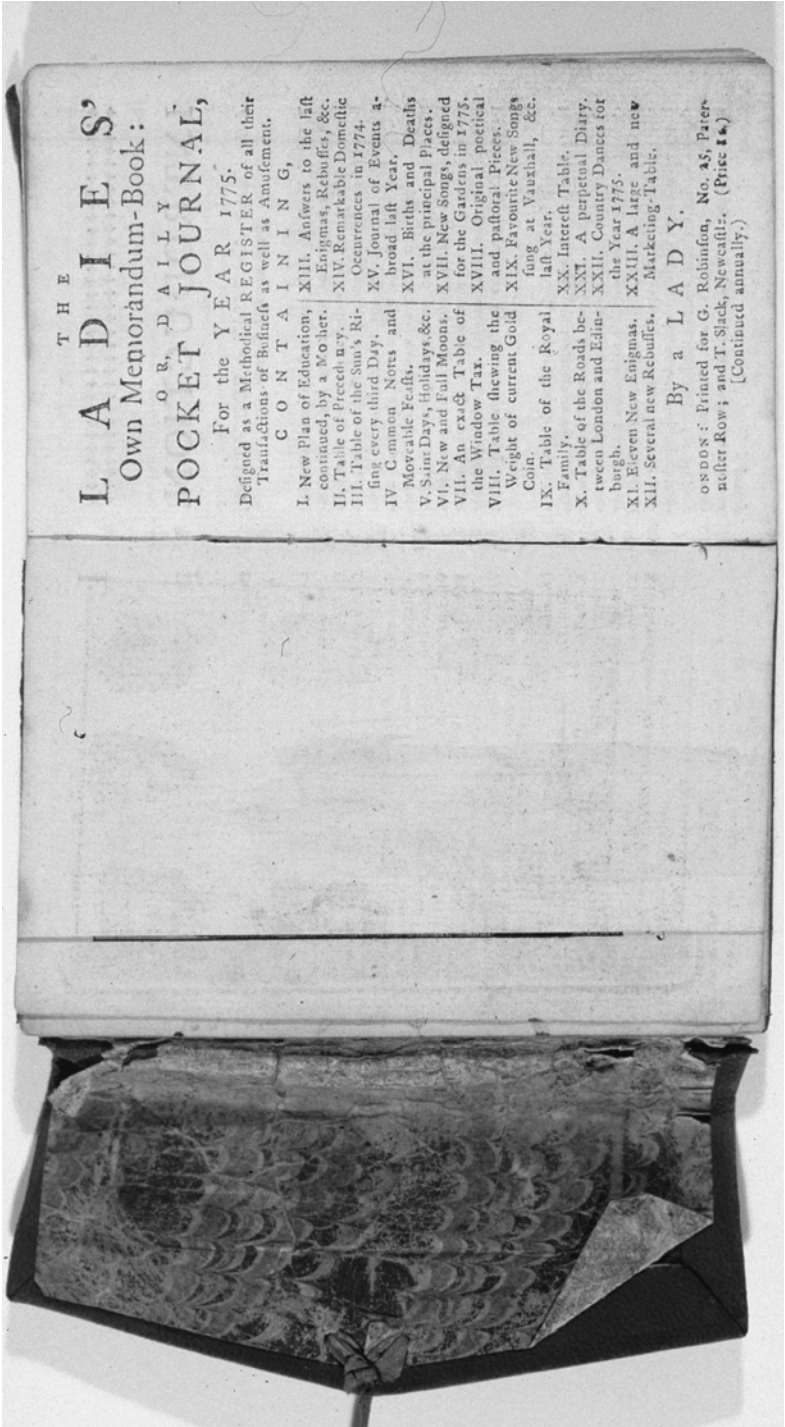 THE
LADIES'
Own Memorandum-Book:
OR, DAILY
POCKET JOURNAL,
For the YEAR 1775.
Deſigned as a Methodical REGISTER of all their
Tranſactions of Buſineſs as well as Amuſement.
CONTAINING,
I. New Plan of Education,
continued, by a Mother.
II. Table of Precedency.
III. Table of the Sun's Ri-
ſing every third Day.
IV Common Notes and
Moveable Feaſts.
V. Saint Days, Holidays, &c.
VI. New and Full Moons.
VII. An exact Table of
the Window Tax.
VIII. Table ſhewing the
Weight of current Gold
Coin.
IX. Table of the Royal
Family.
X. Table of the Roads be-
tween London and Edin-
burgh.
XI. Eleven New Enigmas.
XII. Several new Rebuſſes.
XIII. Anſwers to the laſt
Enigmas, Rebuſſes, &c.
XIV. Remarkable Domeſtic
Occurrences in 1774.
XV. Journal of Events a-
broad laſt Year.
XVI. Births and Deaths
at the principal Places.
XVII. New Songs, deſigned
for the Gardens in 1775.
XVIII. Original poetical
and paſtoral Pieces.
XIX. Favourite New Songs
ſung at Vauxhall, &c.
laſt Year.
XX. Intereſt Table.
XXI. A perpetual Diary.
XXII. Country Dances for
the Year 1775.
XXIII. A large and new
Marketing-Table.
By a LADY.
ONDON: Printed for G. Robinſon, No. 25, Pater-
noſter Row; and T. Slack, Newcaſtle. (Price 1s.)
[Continued annually.]